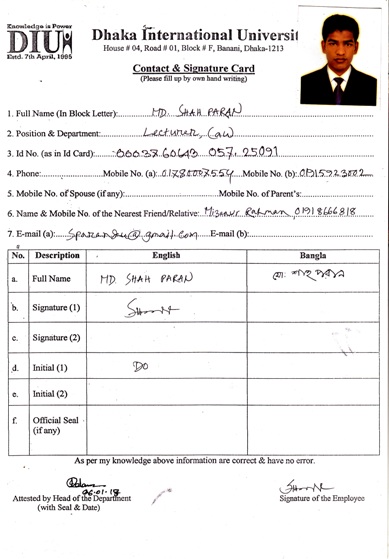 Knowledge is Power
DIU
Estd. 7th April, 1995
Dhaka International Universit
House # 04, Road # 01, Block # F, Banani, Dhaka-1213
Contact & Signature Card
(Please fill up by own hand writing)
1. Full Name (In Block Letter): MD. SHAH PARAN
2. Position & Department: Lecturer, Law
3. Id No. (as in Id Card): 00037.60643 057.25091
4. Phone: Mobile No. (a): 01780007554 Mobile No. (b):
5. Mobile No. of Spouse (if any): Mobile No. of Parent's:
6. Name & Mobile No. of the Nearest Friend/Relative: Mizanur Rahman, 01918666818
7. E-mail (a): E-mail (b):
No. Description English Bangla
a. Full Name MD. SHAH PARAN মো: শাহ পরান
b. Signature (1)
c. Signature (2)
d. Initial (1) DO
e. Initial (2)
f. Official Seal
(if any)
As per my knowledge above information are correct & have no error.
06.01.18
Attested by Head of the Department
(with Seal & Date)
Signature of the Employee